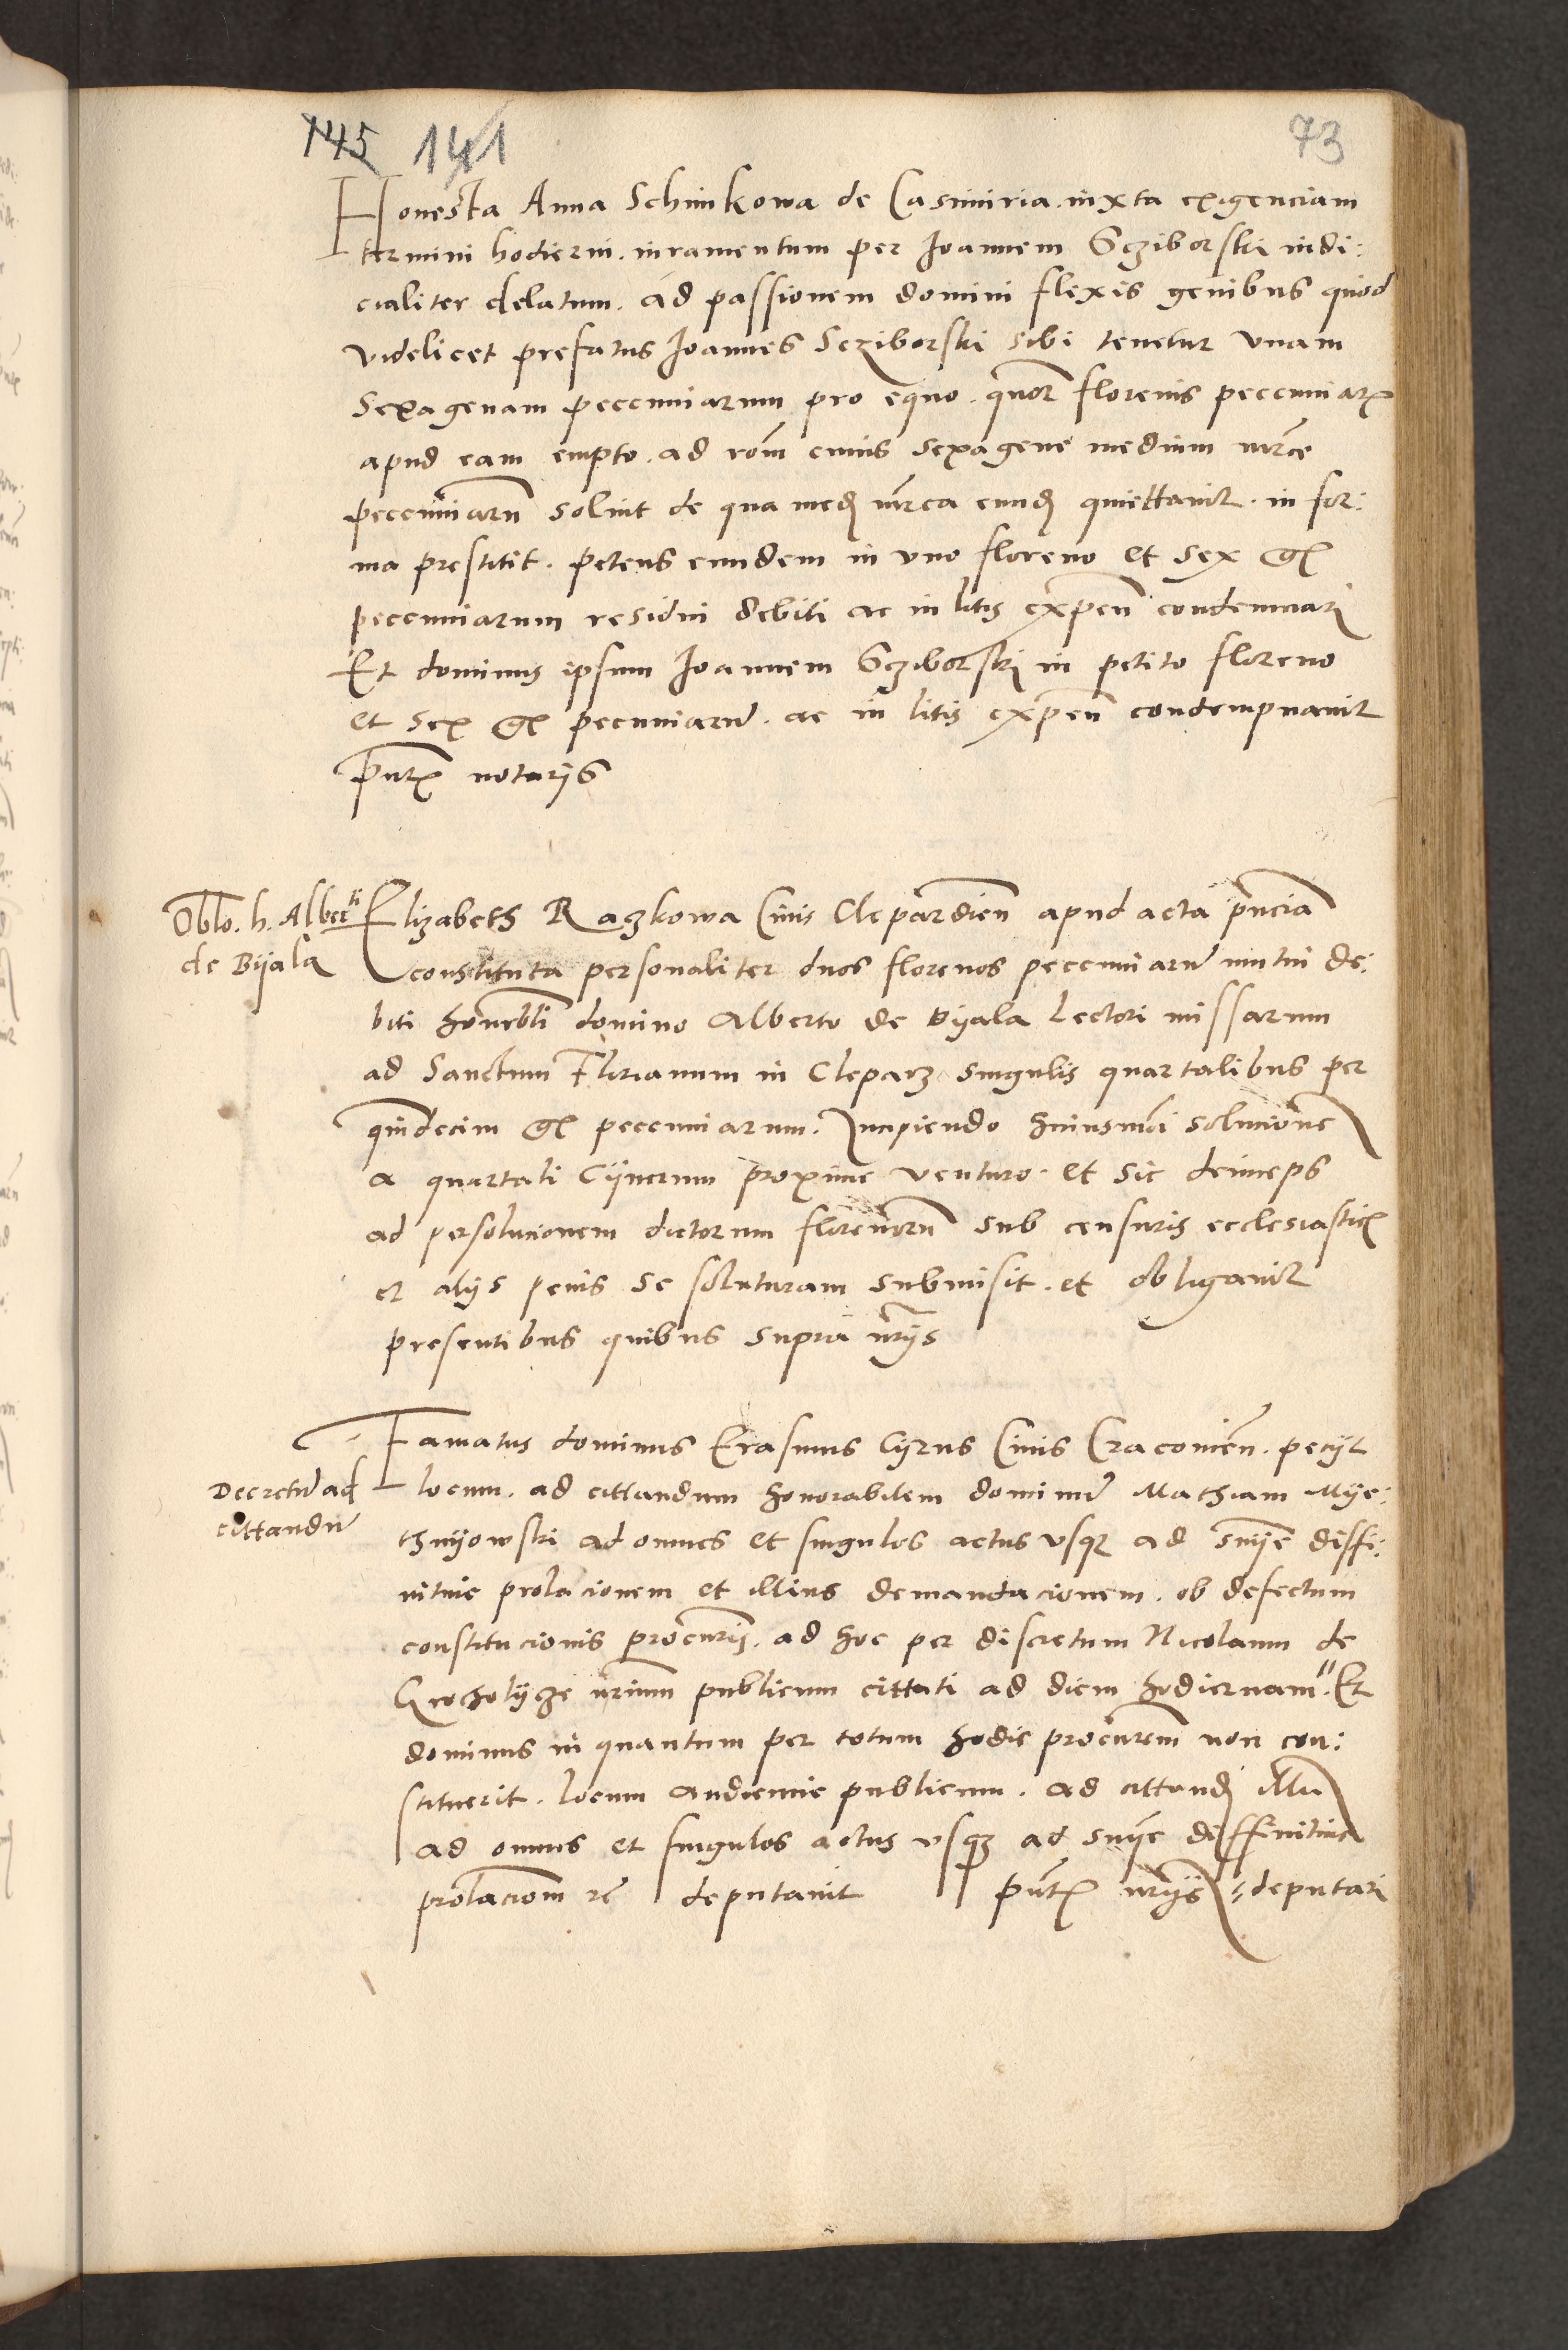 145 141 73
Honesta Anna Schimkowa de Casimiria iuxta exigenciam
termini hodierni. iuramentum per Ioannem Scziborski iudi:
cialiter delatum. ad passionem domini flexis genibus quod
videlicet prefatus Ioannes Scziborski sibi tenetur vnam
Sexagenam peccuniarum pro equo. quor florenis peccuniarꝝ
apud eam empto. ad rom cuius sexagene medium mrce
peccuniarꝝ soluit de qua med mrca eund quittauit. in for:
ma prestitit. petens eundem in vno floreno et sex gr
peccuniarum residui debiti ac in litis expen condemnari
Et dominus ipsum Ioannem Scziborski in petito floreno
et sex gr pecuniarum. ac in litis expen condempnauit
pntꝰ notarijs
Oblo. h. Alberti
de Bijala
Elizabeth Raczkowa Ciuis Clepardien apud acta pncia
constituta personaliter duos florenos peccuniarum mutui de:
biti honorbli domino Alberto de Bijala Lectori missarum
ad Sanctum Florianum in Cleparz singulis quartalibus per
quindecim gr peccuniarum. Incipiendo huiusmodi solucione
a quartali Cijnerum proxime venturo. et sic deinceps
ad persolucionem dictorum florenorum sub censuris ecclesiastic
et alijs penis se soluturam submisit. et obligauit
presentibus quibus supra nrijs
Decretum ad
cittandum
Famatus dominus Erasmus Cijrus Ciuis Cracouien. pecijt
locum. ad cittandum honorabilem dominum Mathiam Mije:
thnijowski ad omnes et singulos actus vsqꝫ ad snije diffi:
nitiue prolacionem et illius demandacionem. ob defectum
constitucionis procurij. ad hoc per discretum Nicolaum de
Grocholijcze nrium publicum cittati ad diem hodiernam" Et
dominus in quantum per totum hodie procurem non con:
stituerit. locum audiencie publicum. ad cittand illum
ad omnes et singulos actus vsqꝫ ad snije diffinitiua
prolaciom rc deputauit pntꝰ nrijs " deputari